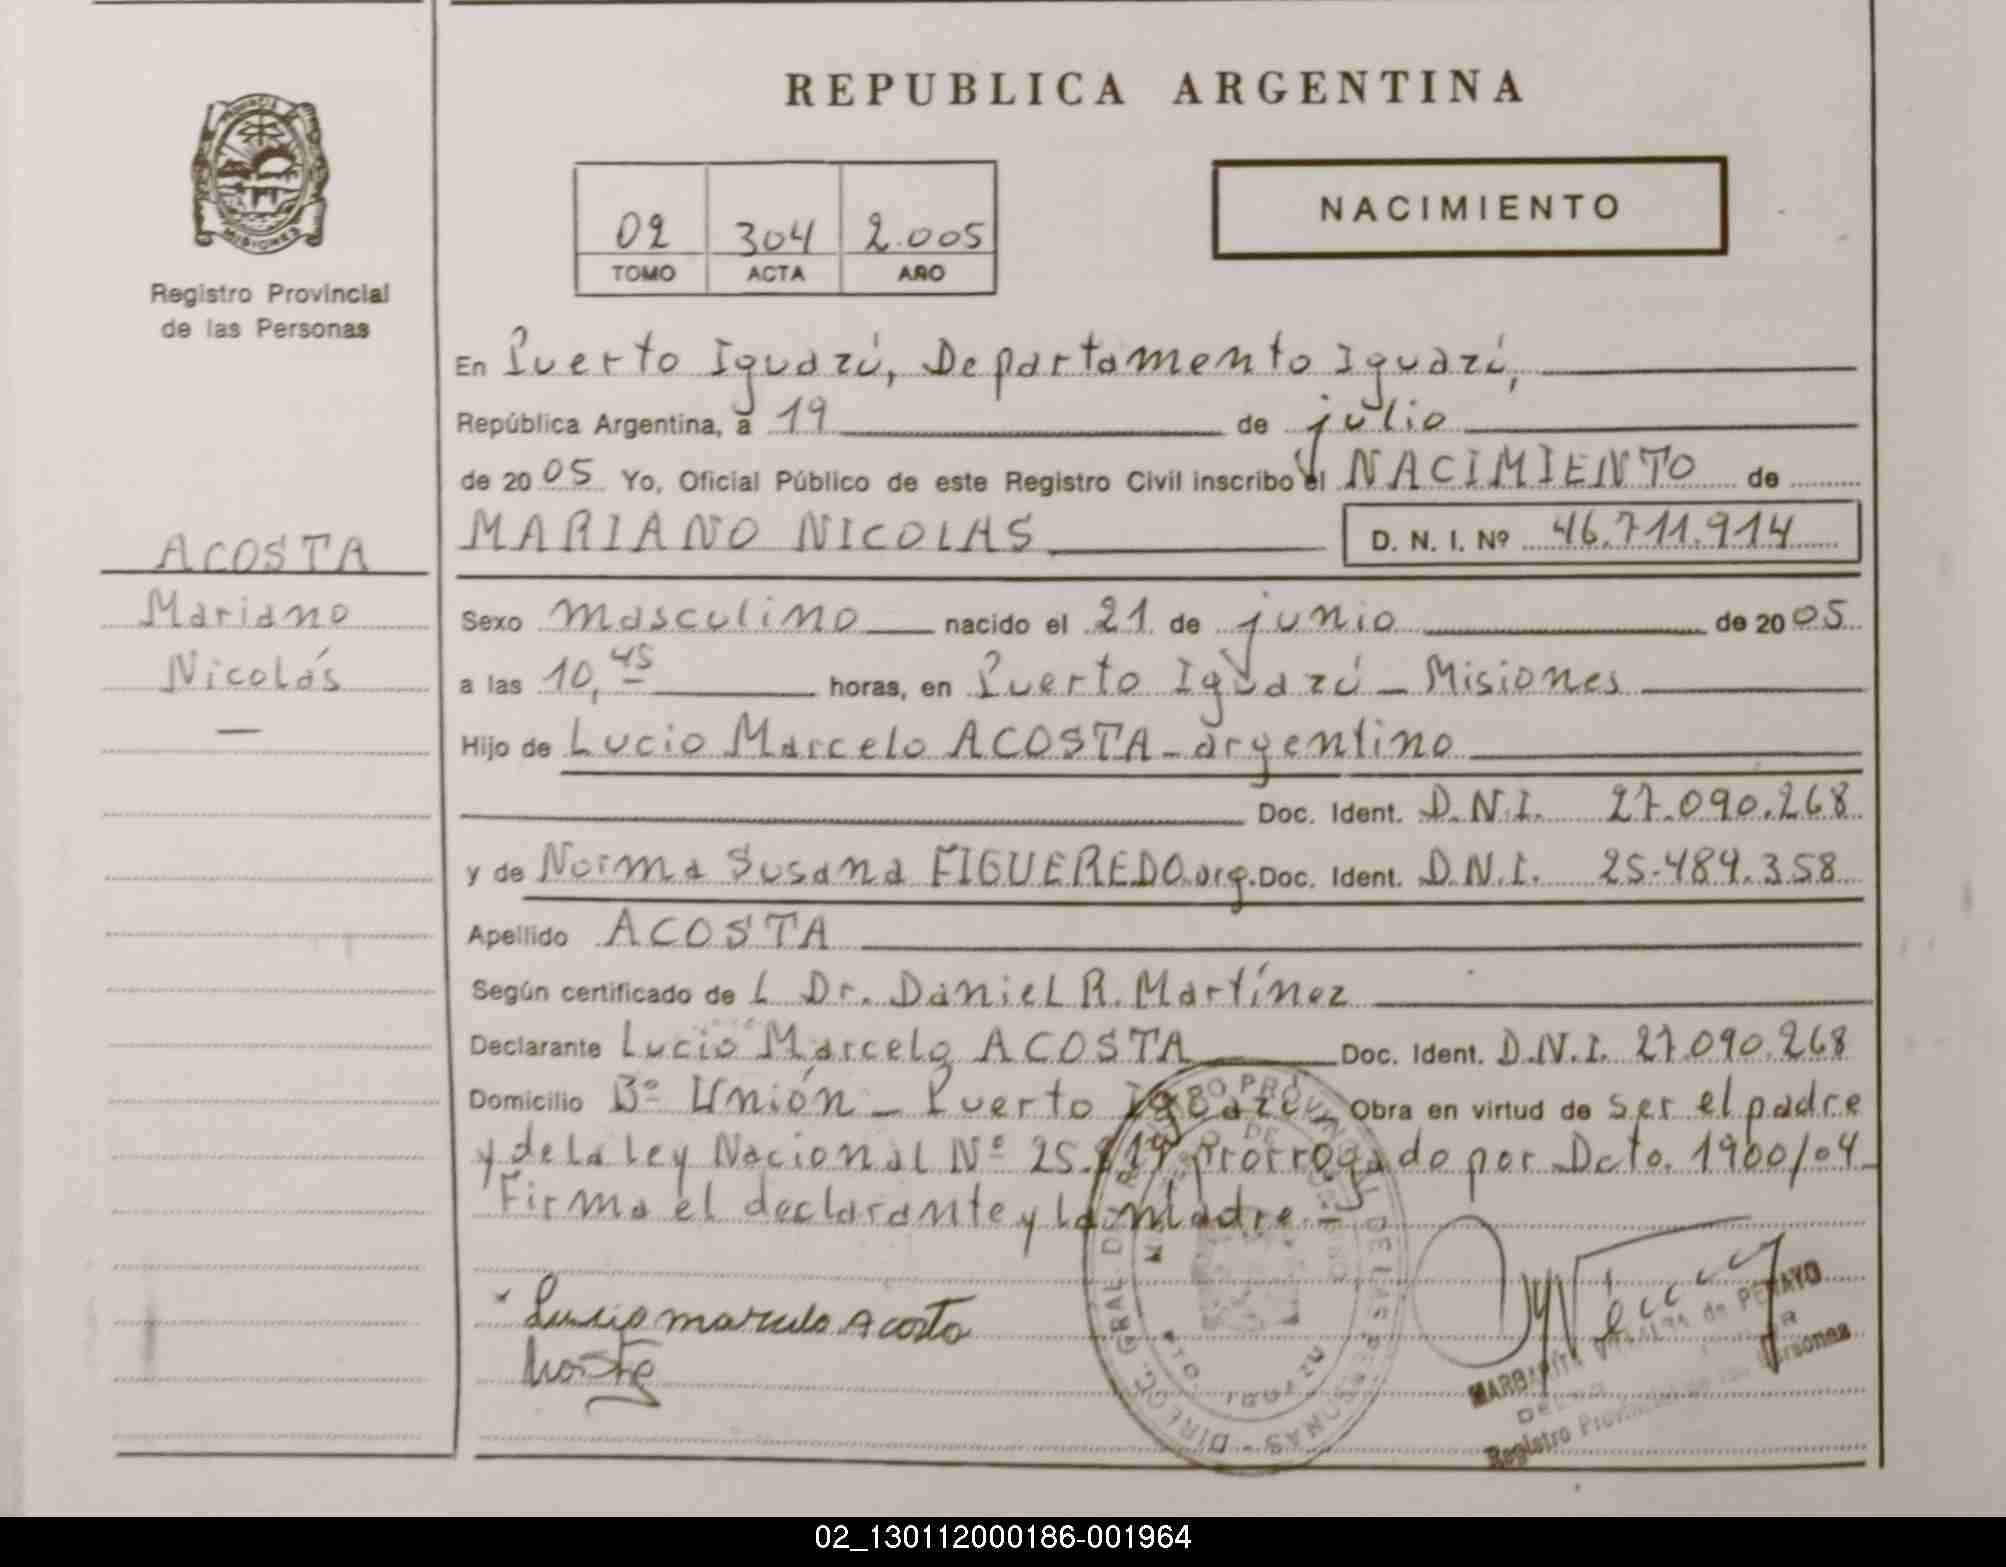 REPUBLICA ARGENTINA
MISIONES
Registro Provincial
de las Personas
02 304 2.005
TOMO ACTA AÑO
NACIMIENTO
En Puerto Iguazú, Departamento Iguazú,
República Argentina, a 19 de julio
de 2005 Yo, Oficial Público de este Registro Civil inscribo el NACIMIENTO de
MARIANO NICOLAS D. N. I. Nº 46.711.914
ACOSTA
Mariano
Nicolás
—
Sexo masculino nacido el 21 de junio de 2005
a las 10,45 horas, en Puerto Iguazú - Misiones
Hijo de Lucio Marcelo ACOSTA - argentino
Doc. Ident. D.N.I. 27.090.268
y de Norma Susana FIGUEREDO.arg. Doc. Ident. D.N.I. 25.484.358
Apellido ACOSTA
Según certificado de L Dr. Daniel R. Martínez
Declarante Lucio Marcelo ACOSTA Doc. Ident. D.N.I. 27.090.268
Domicilio Bº Unión - Puerto Iguazú Obra en virtud de ser el padre
y de la Ley Nacional Nº 25.819 prorrogado por Dcto. 1900/04
Firma el declarante y la madre.-
Lucio marcelo Acosta
DIRECC. GRAL. DE REGISTRO PROVINCIAL DE LAS PERSONAS
IGUAZU
de PENAYO
Registro Provincial de las Personas
02_130112000186-001964